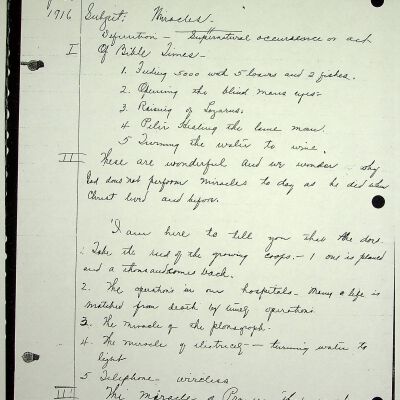 1916 Subject: Miracles -
Definition - Supernatural occurance or act
I Of Bible Times -
1. Feeding 5000 with 5 loaves and 2 fishes.
2. Opening the blind mans eyes -
3. Raising of Lazarus.
4 Peter Healing the lame man.
5 Turning the water to wine.
II These are wonderful and we wonder why
God does not perform miracles to day as he did when
Christ lived and before.
I am here to tell you that He does
1. Take the seed of the growing crops. - 1 one is placed
and a thousand comes back.
2. The operations in our hospitals - Many a life is
snatched from death by timely operations
3. The miracle of the phonograph.
4. The miracle of electricity - turning water to
light
5 Telephone - wireless
III The miracle of